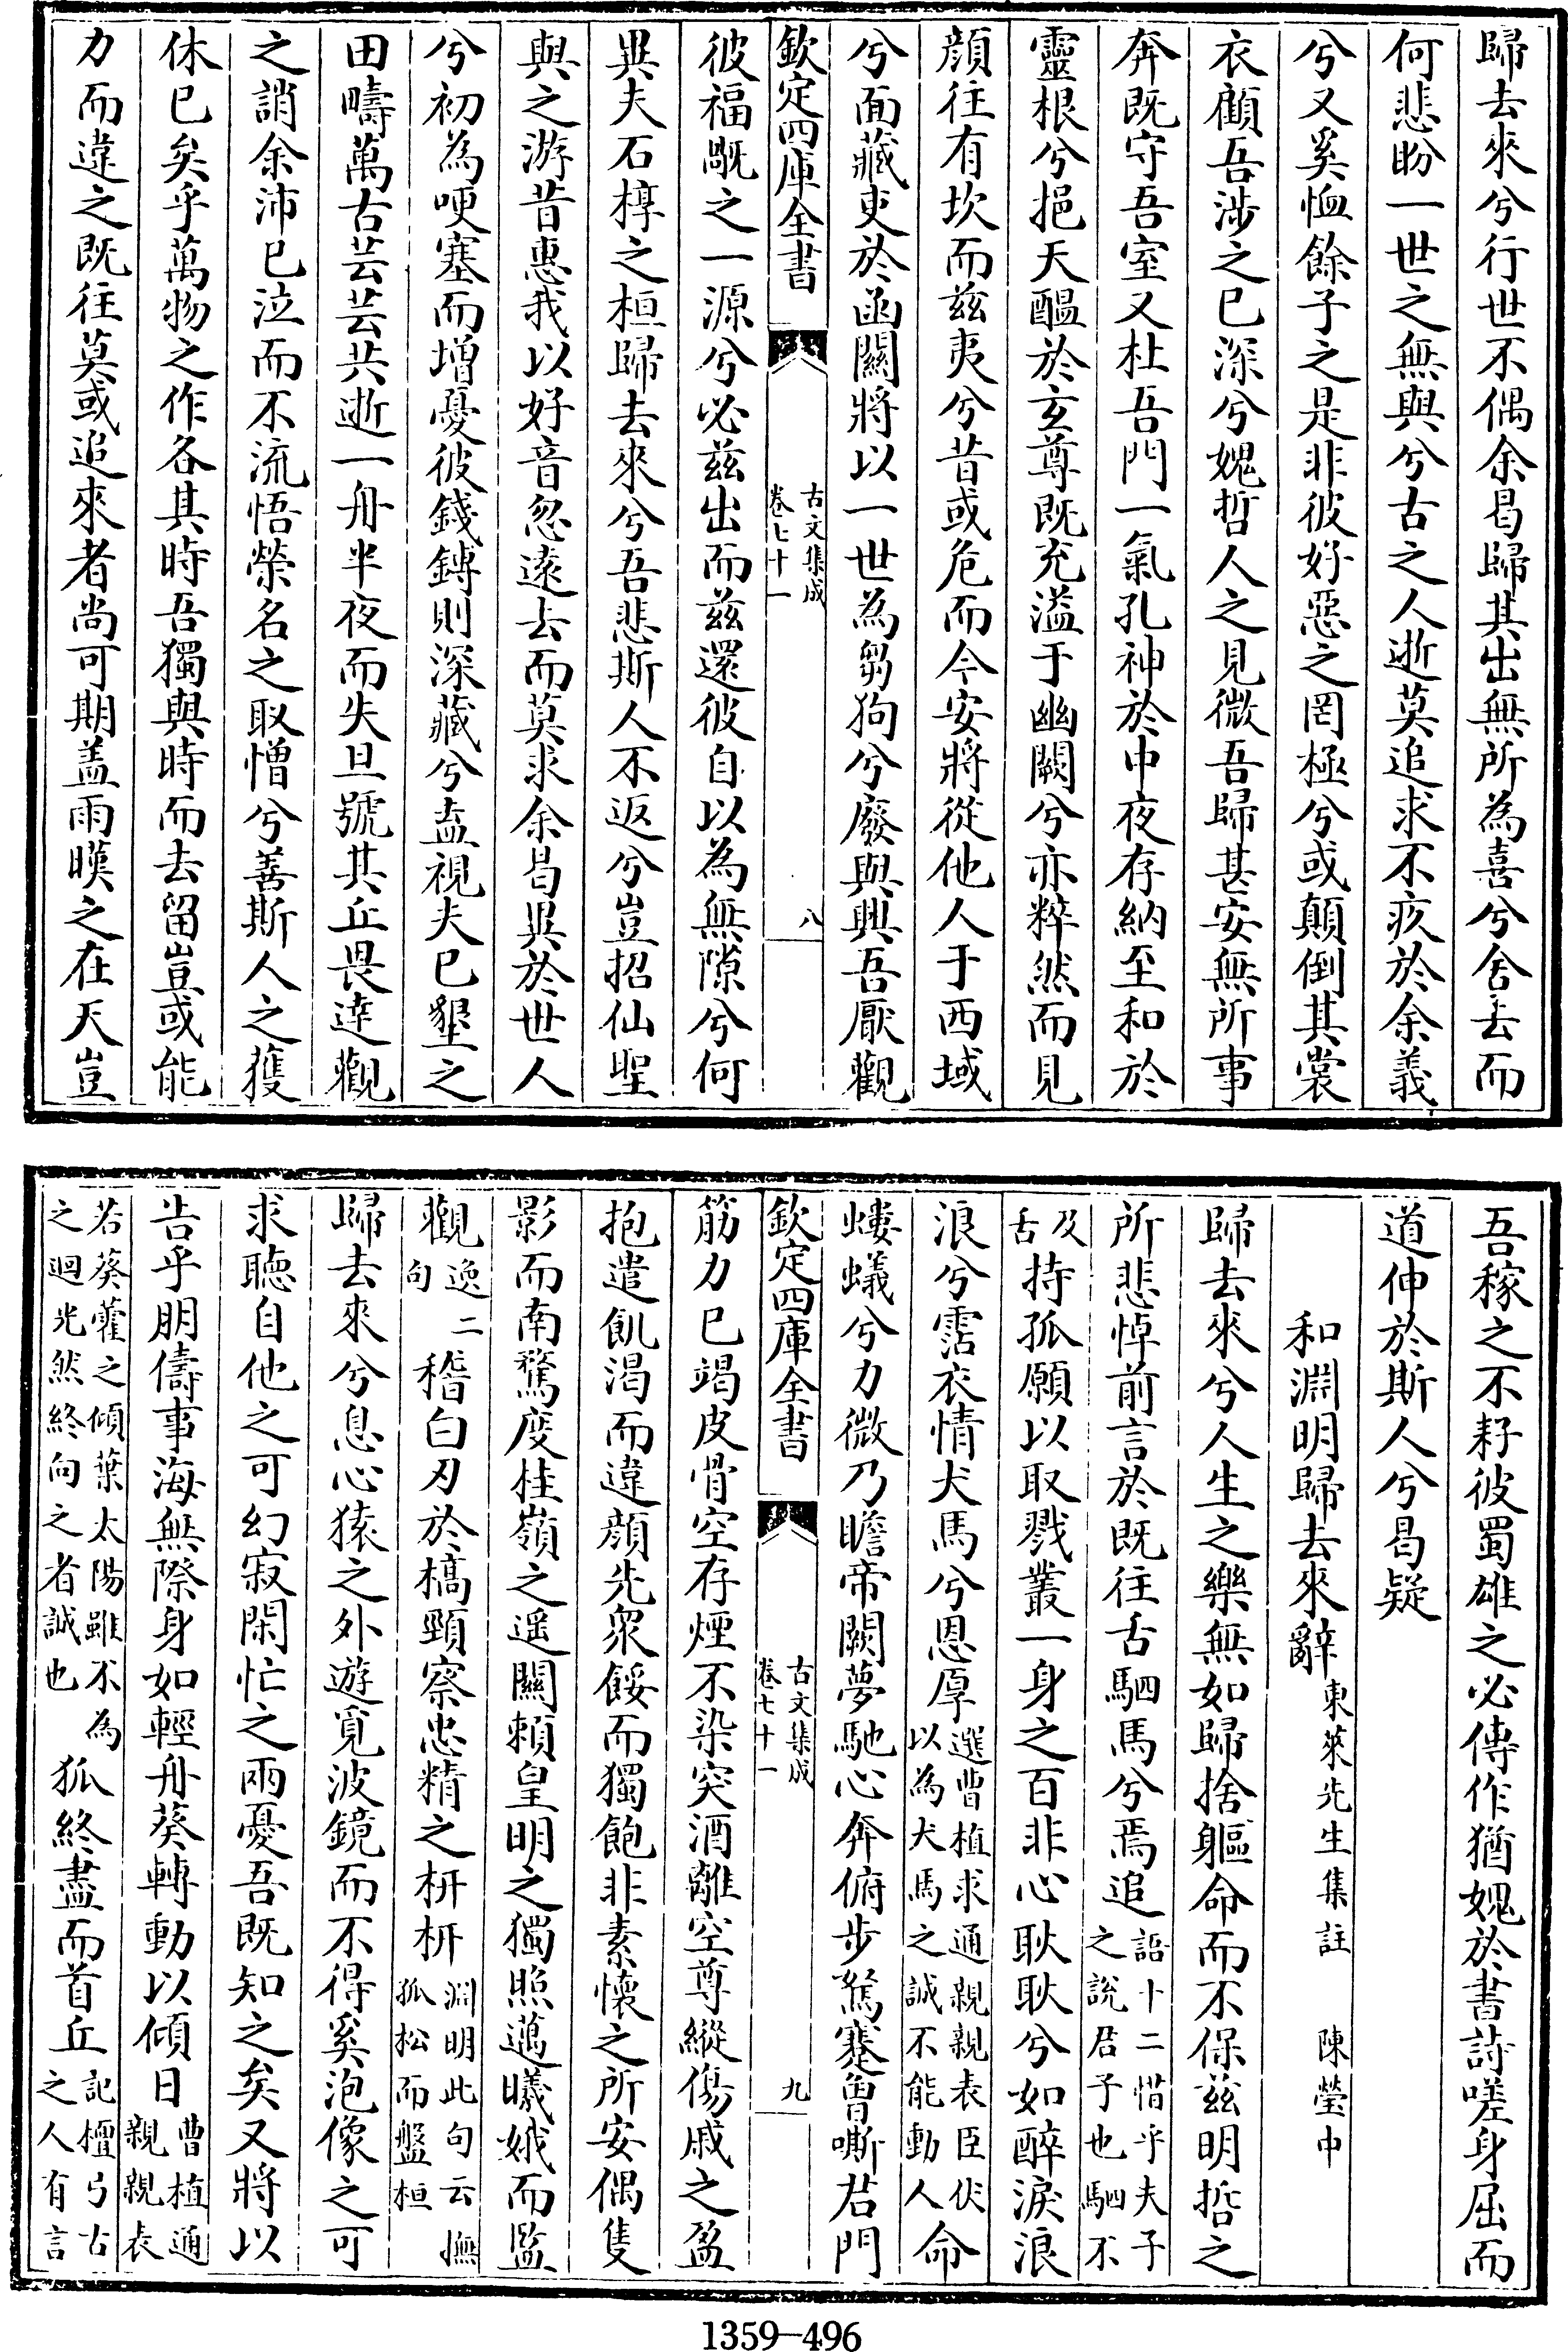 歸去來兮行世不偶余曷歸其出無所為喜兮舍去而
何悲眇一世之無與兮古之人逝莫追求不疚於余義
兮又奚恤餘子之是非彼好惡之罔極兮或顛倒其裳
衣顧吾涉之已深兮媿哲人之見微吾歸甚安無所事
奔既守吾室又杜吾門一氣孔神於中夜存納至和於
靈根兮挹天醞於玄尊既充溢于幽闕兮亦粹然而見
顔往有坎而兹夷兮昔或危而今安將從他人于西域
兮面藏吏於函關將以一世為芻狗兮廢與興吾厭觀
欽定四庫全書
古文集成
卷七十一
八
彼福戬之一源兮必兹出而兹還彼自以為無隙兮何
異夫石椁之桓歸去來兮吾悲斯人不返兮豈招仙聖
與之游昔惠我以好音忽遠去而莫求余曷異於世人
兮初為哽塞而增憂彼錢鎛則深藏兮盍視夫已墾之
田疇萬古芸芸共逝一舟半夜而失旦號其丘畏達觀
之誚余沛已泣而不流悟榮名之取憎兮善斯人之獲
休已矣乎萬物之作各其時吾獨與時而去留豈或能
力而違之既往莫或追來者尚可期盖雨暵之在天豈
吾稼之不耔彼蜀雄之必傳作猶媿於書詩嗟身屈而
道伸於斯人兮曷疑
和淵明歸去來辭 東萊先生集註 陳瑩中
歸去來兮人生之樂無如歸捨軀命而不保兹明哲之
所悲悼前言於既往舌駟馬兮焉追 語十二惜乎夫子之說君子也駟不
及舌 持孤願以取戮叢一身之百非心耿耿兮如醉淚浪
浪兮霑衣情犬馬兮恩厚 選曹植求通親親表臣伏以為犬馬之誠不能動人 命
螻蟻兮力微乃瞻帝闕夢馳心奔俯步駑蹇曾嘶君門
欽定四庫全書
古文集成
卷七十一
九
筋力已竭皮骨空存煙不染突酒離空尊縱傷戚之盈
抱遣飢渴而違顔先衆餒而獨飽非素懷之所安偶隻
影而南騖度桂嶺之遥關賴皇明之獨照邁曦娥而監
觀 逸二句 稽白刃於槁頸察忠精之枅枅 淵明此句云撫孤松而盤桓
歸去來兮息心猿之外遊覓波鏡而不得奚泡像之可
求聽自他之可幻寂閑忙之兩憂吾既知之矣又將以
告乎朋儔事海無際身如輕舟葵轉動以傾日 曹植通親親表
若葵藿之傾葉太陽雖不為之迴光然終向之者誠也 狐終盡而首丘 記檀弓古之人有言
1359—496